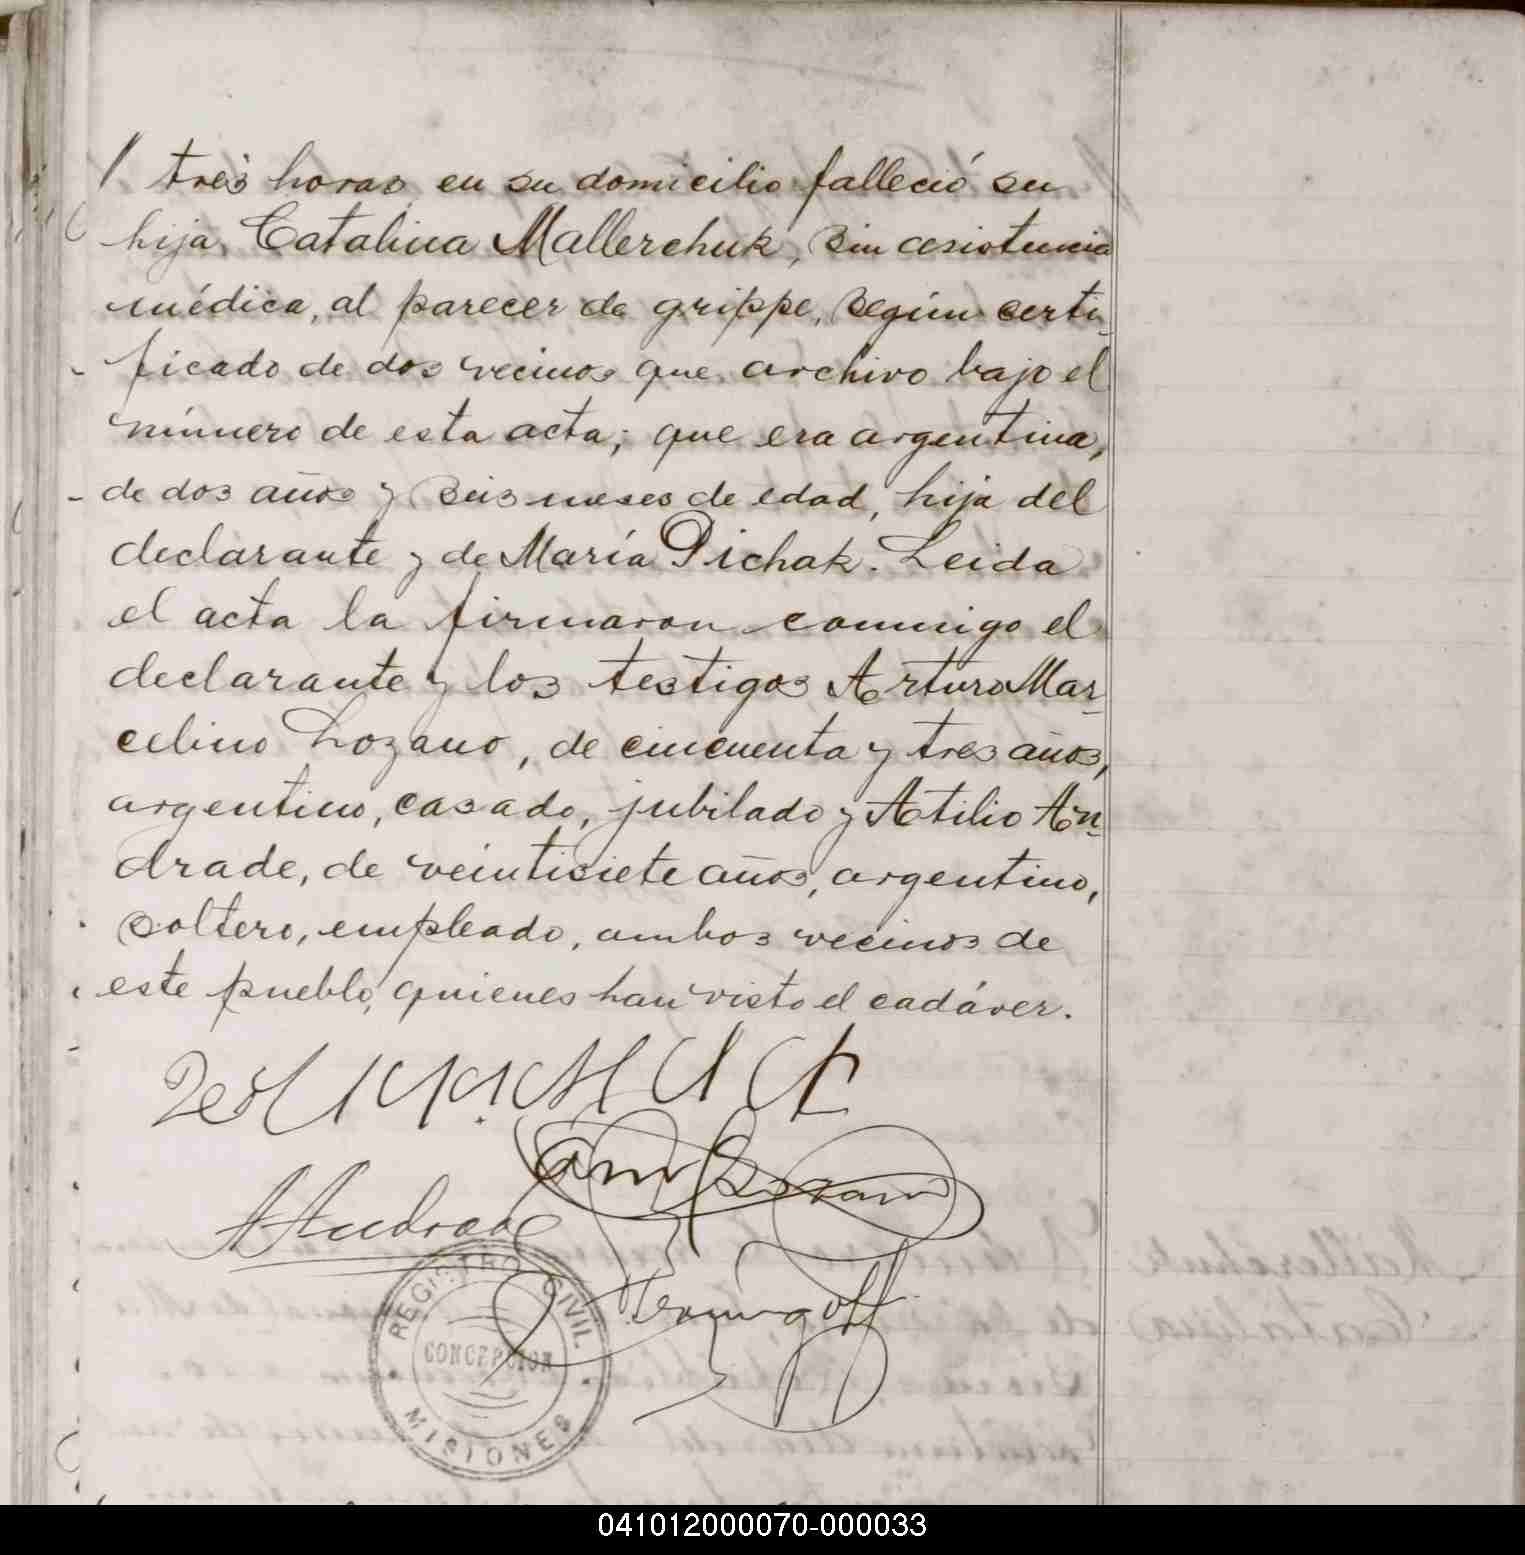 tres horas, en su domicilio falleció su
hija, Catalina Mallerchuk, sin asistencia
médica, al parecer de grippe, según certi-
ficado de dos vecinos que archivo bajo el
número de esta acta; que era argentina,
de dos años y seis meses de edad, hija del
declarante y de María Pichak. Leida
el acta la firmaron conmigo el
declarante y los testigos Arturo Mar-
celino Lozano, de cincuenta y tres años,
argentino, casado, jubilado y Atilio An-
drade, de veintisiete años, argentino,
soltero, empleado, ambos vecinos de
este pueblo, quienes han visto el cadáver.
AAndrade
REGISTRO CIVIL
CONCEPCION
MISIONES
041012000070-000033